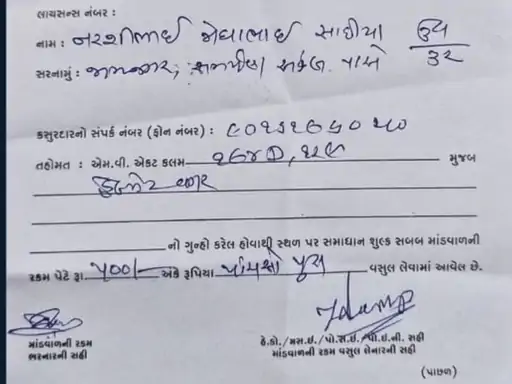 લાયસન્સ નંબર :
નામ : નરશીભાઈ મેઘાભાઈ સાદીયા ઉ.વ
૩૨
સરનામું : જામનગર, સમર્પણ સર્કલ પાસે
કસુરદારનો સંપર્ક નંબર (ફોન નંબર) :
તહોમત : એમ.વી. એકટ કલમ ૧૯૪D, ૧૨૯ મુજબ
હેલ્મેટ વગર
નો ગુન્હો કરેલ હોવાથી સ્થળ પર સમાધાન શુલ્ક સબબ માંડવાળની
રકમ પેટે રૂા ૫૦૦/- અંકે રૂપિયા પાંચસો પુરા વસુલ લેવામાં આવેલ છે.
માંડવાળની રકમ
ભરનારની સહી
હે.કો./એસ.ઇ./પો.સ.ઇ./પી.ઇ.ની. સહી
માંડવાળની રકમ વસુલ લેનારની સહી
(પાછળ)